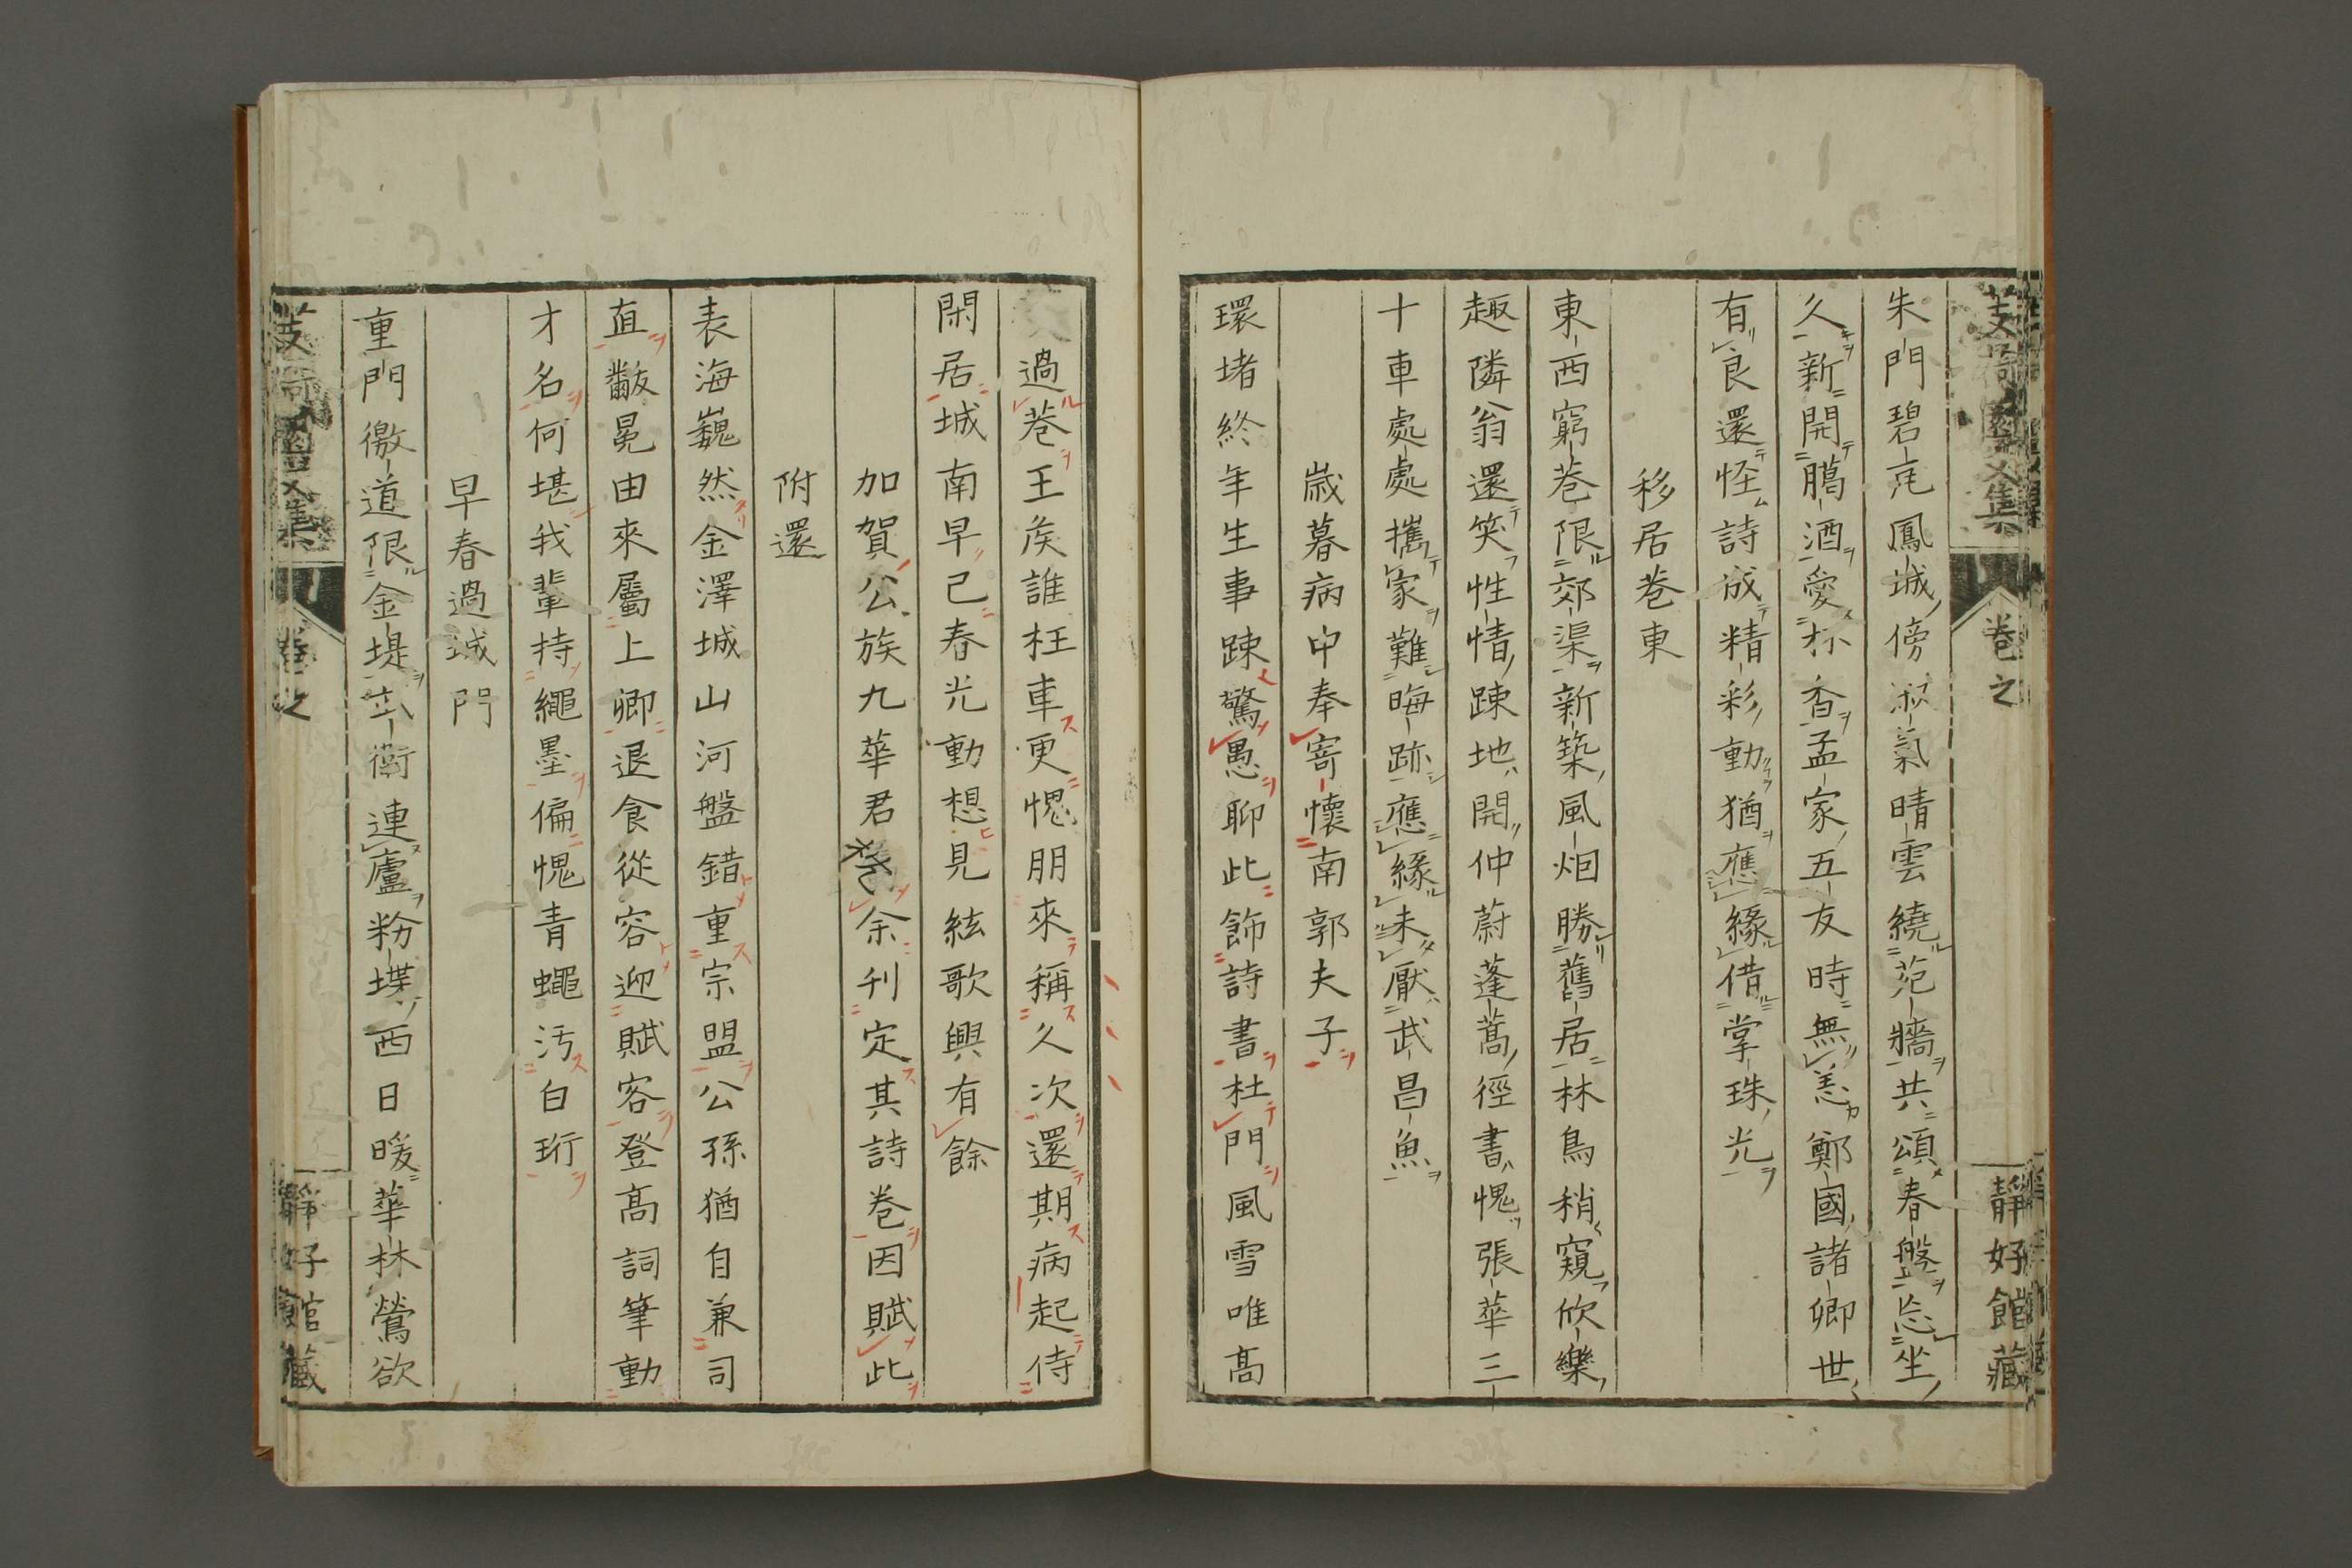 朱門碧瓦鳳城傍淑氣晴雲繞苑牆共頌春盤忘坐
久新開臈酒愛杯香孟家五友時無恙鄭國諸卿世
有良還怪詩成精彩動猶應緣借掌珠光
移居巷東
東西窮巷限郊渠新築風烟勝舊居林鳥稍窺欣樂
趣隣翁還笑性情踈地開仲蔚蓬蒿徑書愧張華三
十車處處攜家難晦跡應緣未厭武昌魚
歳暮病中奉寄懷南郭夫子
環堵終年生事踈驚愚聊此飾詩書杜門風雪唯高
卷之
靜好館藏
過巷王矦誰枉車更愧朋來稱久次還期病起侍
閑居城南早已春光動想見絃歌興有餘
加賀公族九華君余刊定其詩卷因賦此
附還
表海巍然金澤城山河盤錯重宗盟公孫猶自兼司
直黻冕由來屬上卿退食從容迎賦客登高詞筆動
才名何堪我輩持繩墨偏愧青蠅汚白珩
早春過城門
重門徼道限金堤衛連廬粉堞西日暖華林鶯欲
卷之
靜好館藏